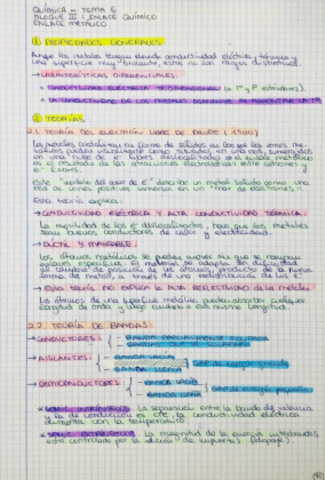 QUÍMICA - TEMA 6
BLOQUE III: ENLACE QUÍMICO
ENLACE METÁLICO
① PROPIEDADES GENERALES
Aunque los metales tengan elevada conductividad eléctrica, térmica y
una superficie muy brillante, estos no son rasgos distintivos.
→ CARACTERÍSTICAS DIFERENCIALES:
• CONDUCTIVIDAD ELÉCTRICA TRIDIMENSIONAL (a 1ª y P estándares).
• LA CONDUCTIVIDAD DE LOS METALES DISMINUYE AL AUMENTAR LA Tª
② TEORÍAS
2.1. TEORÍA DEL ELECTRÓN LIBRE DE DRUDE (1900)
Los metales cristalizan en forma de sólidos en los que los iones me-
tálicos positivos situados en una red, sumergidos
en una nube de e⁻ libres deslocalizados. El enlace metálico
es el resultado de las atracciones electrostáticas entre cationes y
e⁻ libres.
Este "modelo del mar de e⁻" describe un metal sólido como una
red de iones positivos inmersa en un "mar de electrones".
Esta teoría explica:
→ CONDUCTIVIDAD ELÉCTRICA Y ALTA CONDUCTIVIDAD TÉRMICA:
La movilidad de los e⁻ deslocalizados, hace que los metales
sean buenos conductores de calor y electricidad.
→ DÚCTIL Y MALEABLE:
Los átomos metálicos se pueden mover sin que se rompan
enlaces específicos. El material se adapta sin dificultad
al cambio de posición de los átomos, producto de la nueva
forma del metal, a través de una redistribución de los e⁻.
→ Esta teoría NO EXPLICA LA ALTA REFLECTIVIDAD de los metales:
Los átomos de una superficie metálica pueden absorber cualquier
longitud de onda y luego emitirla a esa misma longitud.
2.2. TEORÍA DE BANDAS:
→ CONDUCTORES: { - BANDA PARCIALMENTE OCUPADA
- BANDAS QUE SE SOLAPAN
→ AISLANTES: { - BANDA VACÍA
- BANDA LLENA } GAP de energía grande
→ SEMICONDUCTORES: { - BANDA VACÍA
- BANDA LLENA } GAP de energía pequeña
• SEMIC. INTRÍNSECOS: La separación entre la banda de valencia
y la de conducción es CTE, la conductividad eléctrica
aumenta con la temperatura.
• SEMIC. EXTRÍNSECOS: La magnitud de la energía interbandas
está controlada por la adición de impurezas (dopaje).